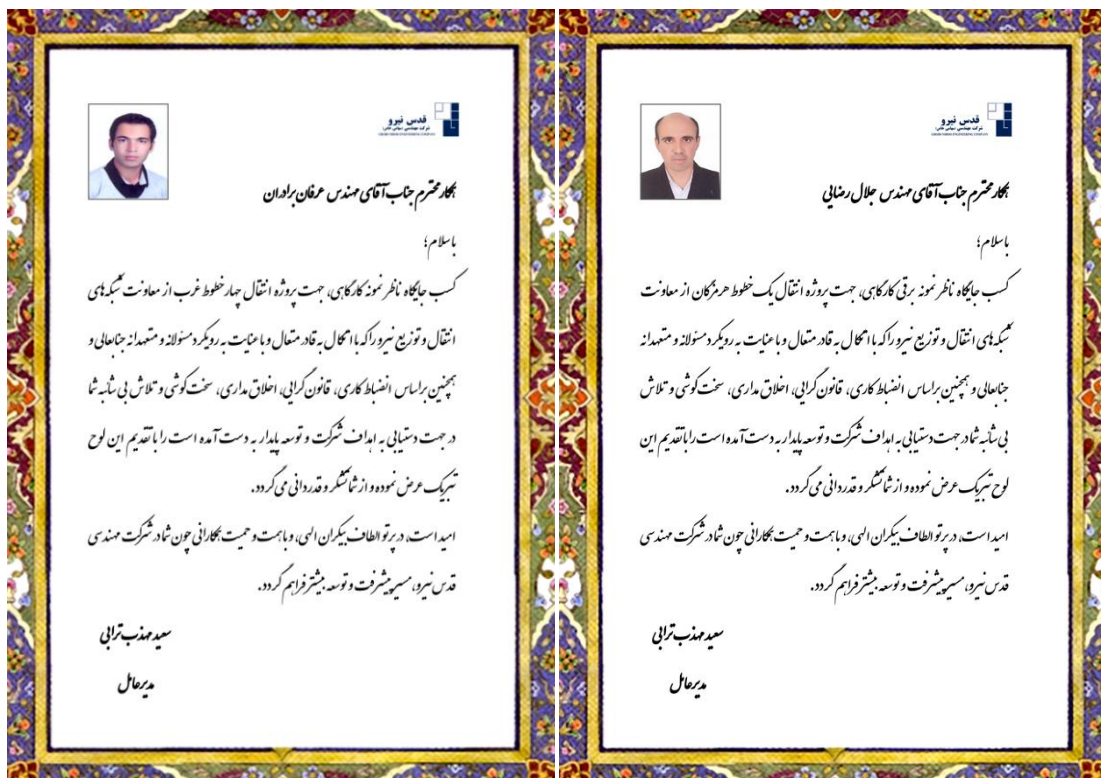 قدس نیرو
شرکت مهندسی (سهامی خاص)
GHODS NIROO ENGINEERING COMPANY
همکار محترم جناب آقای مهندس جلال رضایی
باسلام؛
کسب جایگاه ناظر نمونه برقی کارگاهی، جهت پروژه انتقال یک خطوط هرمزگان از معاونت
شبکه های انتقال و توزیع نیرو را که با اتکال به قادر متعال و با عنایت به رویکرد مسئولانه و متعهدانه
جنابعالی و همچنین براساس انضباط کاری، قانون گرایی، اخلاق مداری، سخت کوشی و تلاش
بی شائبه شما در جهت دستیابی به اهداف شرکت و توسعه پایدار به دست آمده است را با تقدیم این
لوح تبریک عرض نموده و از شما تشکر و قدردانی می گردد.
امید است، در پرتو الطاف بیکران الهی، و با همت و حمیت همکارانی چون شما در شرکت مهندسی
قدس نیرو، مسیر پیشرفت و توسعه بیشتر فراهم گردد.
سعید مهذب ترابی
مدیرعامل
قدس نیرو
شرکت مهندسی (سهامی خاص)
GHODS NIROO ENGINEERING COMPANY
همکار محترم جناب آقای مهندس عرفان برادران
باسلام؛
کسب جایگاه ناظر نمونه کارگاهی، جهت پروژه انتقال چهار خطوط غرب از معاونت شبکه های
انتقال و توزیع نیرو را که با اتکال به قادر متعال و با عنایت به رویکرد مسئولانه و متعهدانه جنابعالی و
همچنین براساس انضباط کاری، قانون گرایی، اخلاق مداری، سخت کوشی و تلاش بی شائبه شما
در جهت دستیابی به اهداف شرکت و توسعه پایدار به دست آمده است را با تقدیم این لوح
تبریک عرض نموده و از شما تشکر و قدردانی می گردد.
امید است، در پرتو الطاف بیکران الهی، و با همت و حمیت همکارانی چون شما در شرکت مهندسی
قدس نیرو، مسیر پیشرفت و توسعه بیشتر فراهم گردد.
سعید مهذب ترابی
مدیرعامل